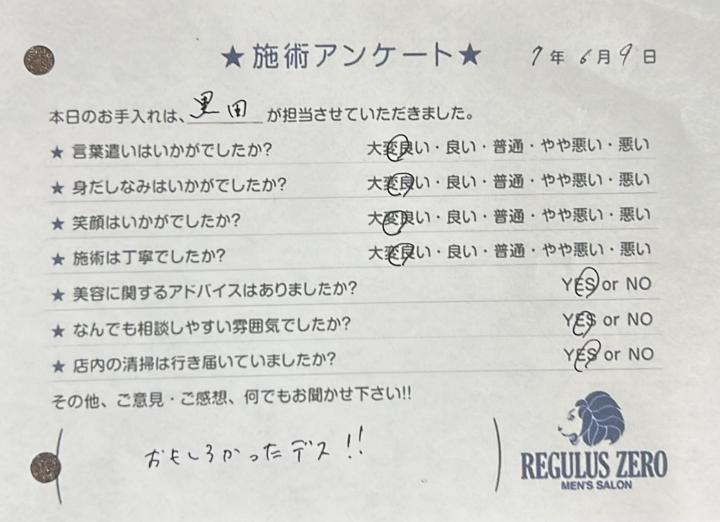 ★施術アンケート★ 7年6月9日
本日のお手入れは、黒田が担当させていただきました。
★ 言葉遣いはいかがでしたか? 大変良い・良い・普通・やや悪い・悪い
★ 身だしなみはいかがでしたか? 大変良い・良い・普通・やや悪い・悪い
★ 笑顔はいかがでしたか? 大変良い・良い・普通・やや悪い・悪い
★ 施術は丁寧でしたか? 大変良い・良い・普通・やや悪い・悪い
★ 美容に関するアドバイスはありましたか? YES or NO
★ なんでも相談しやすい雰囲気でしたか? YES or NO
★ 店内の清掃は行き届いていましたか? YES or NO
その他、ご意見・ご感想、何でもお聞かせ下さい!!
おもしろかったデス!!
REGULUS ZERO
MEN'S SALON